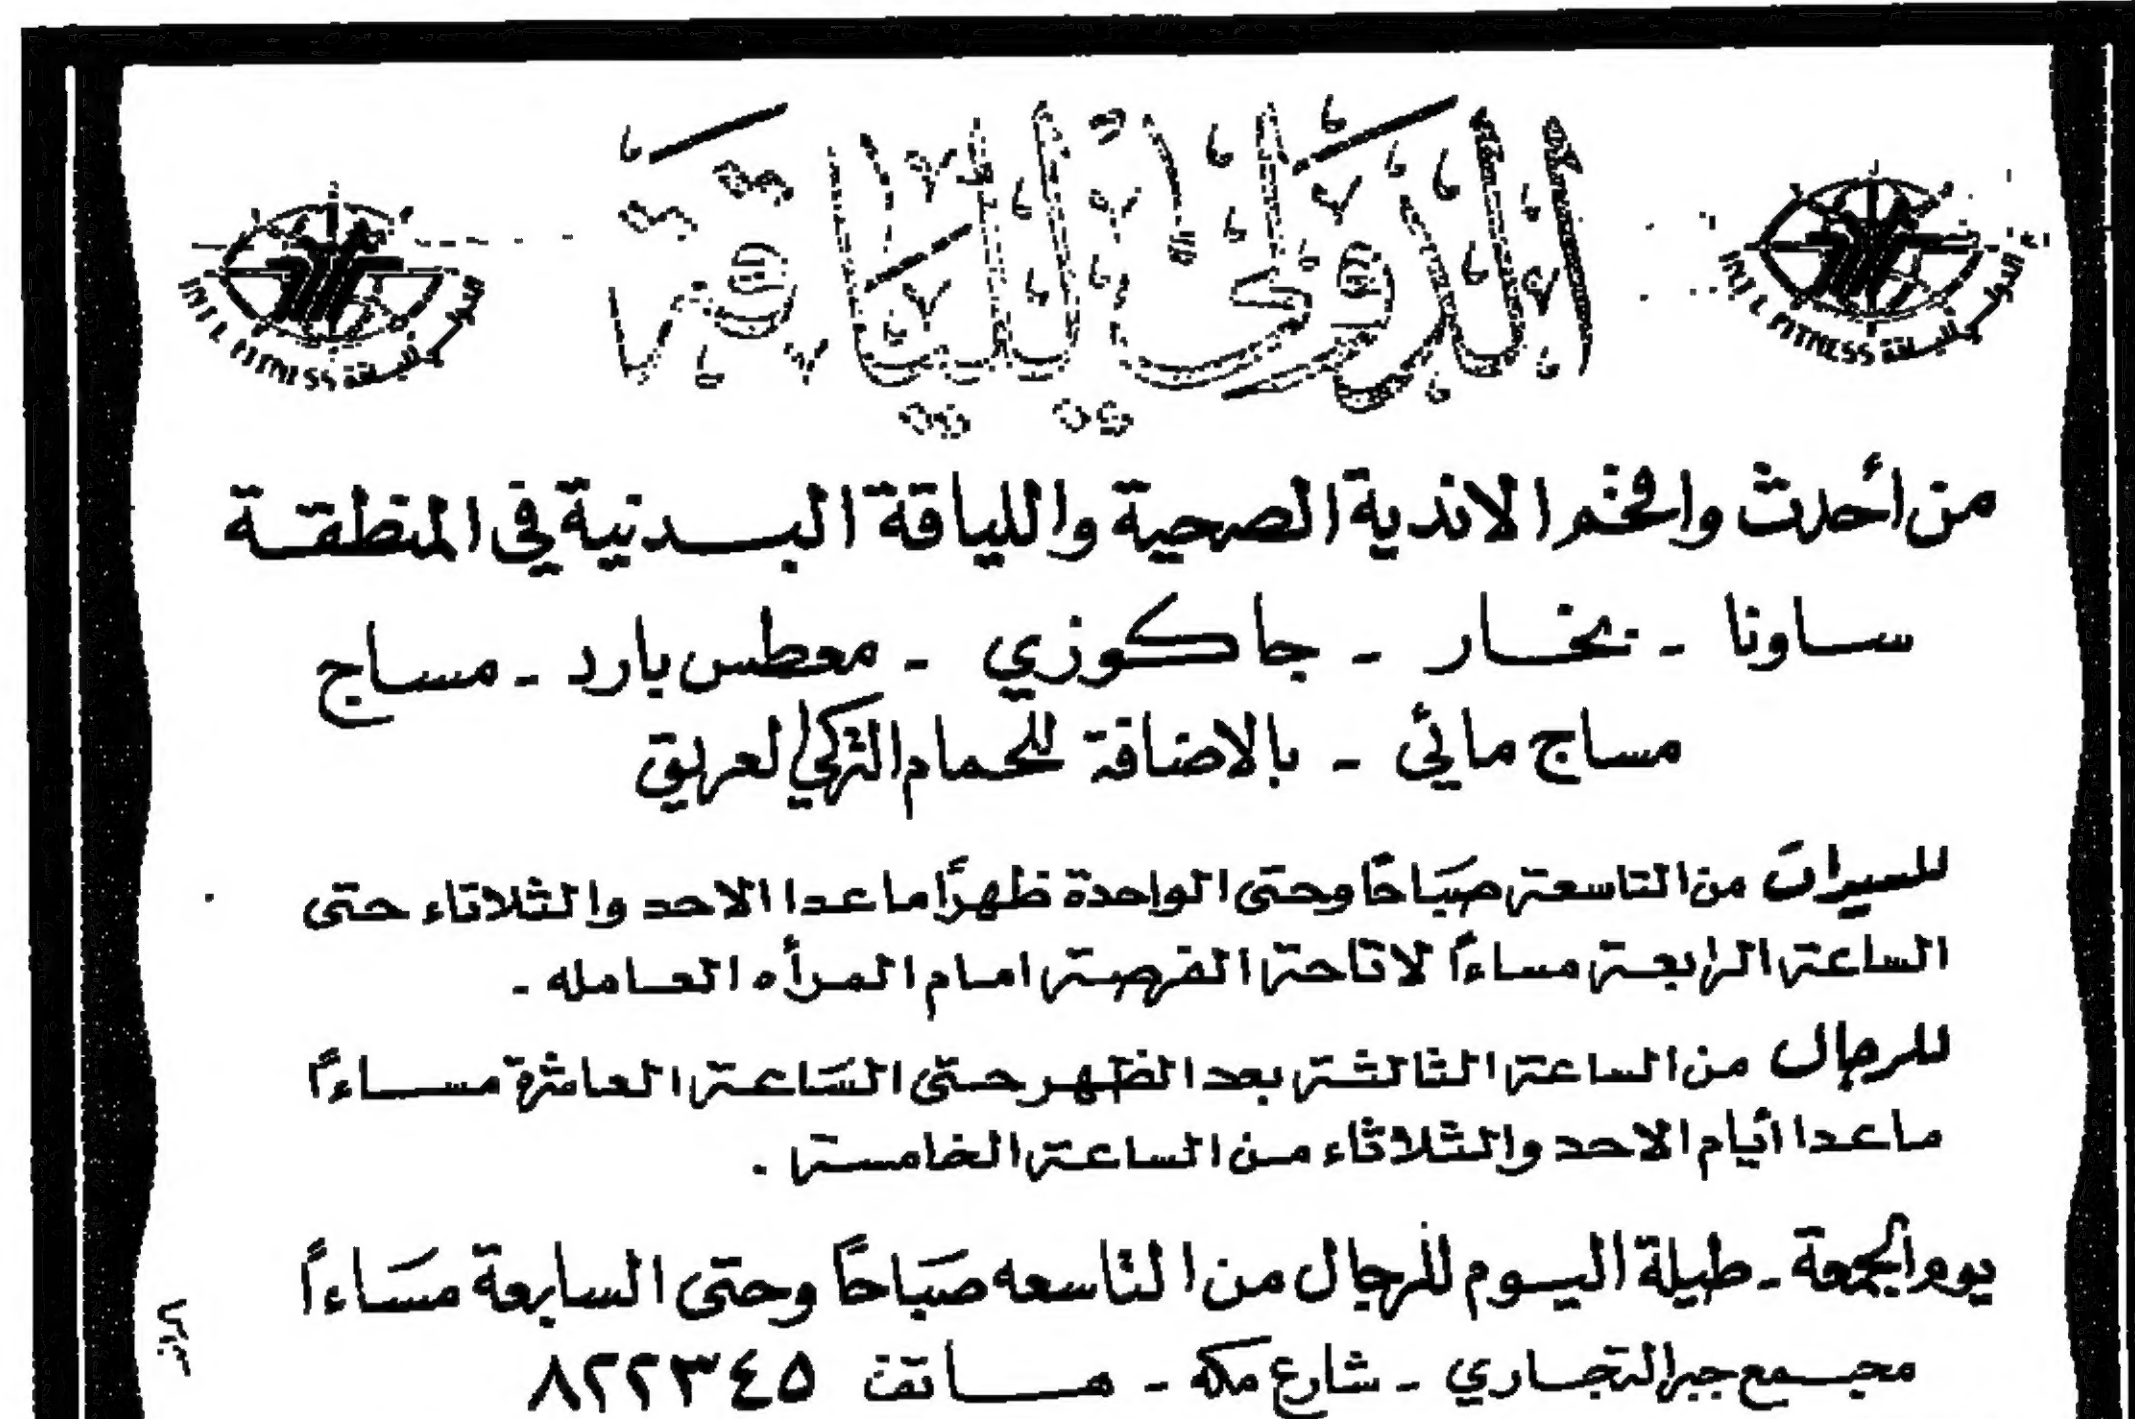 الدولي للياقة
INT'L FITNESS الدولي للياقة
INT'L FITNESS الدولي للياقة
من أحدث وافخم الاندية الصحية واللياقة البدنية في المنطقة
ساونا - بخار - جاكوزي - معطس بارد - مساج
مساج مائي - بالاضافة للحمام التركي العريق
للسيدات من التاسعة صباحًا وحتى الواحدة ظهرًا ما عدا الاحد والثلاثاء حتى
الساعة الرابعة مساءً لاتاحة الفرصة امام المرأه العامله -
للرجال من الساعة الثالثة بعد الظهر حتى الساعة العاشرة مساءً
ما عدا أيام الاحد والثلاثاء من الساعة الخامسة .
يوم الجمعة - طيلة اليوم للرجال من التاسعه صباحًا وحتى السابعة مساءً
مجمع جبر التجاري - شارع مكة - هاتف ٨٢٢٣٤٥